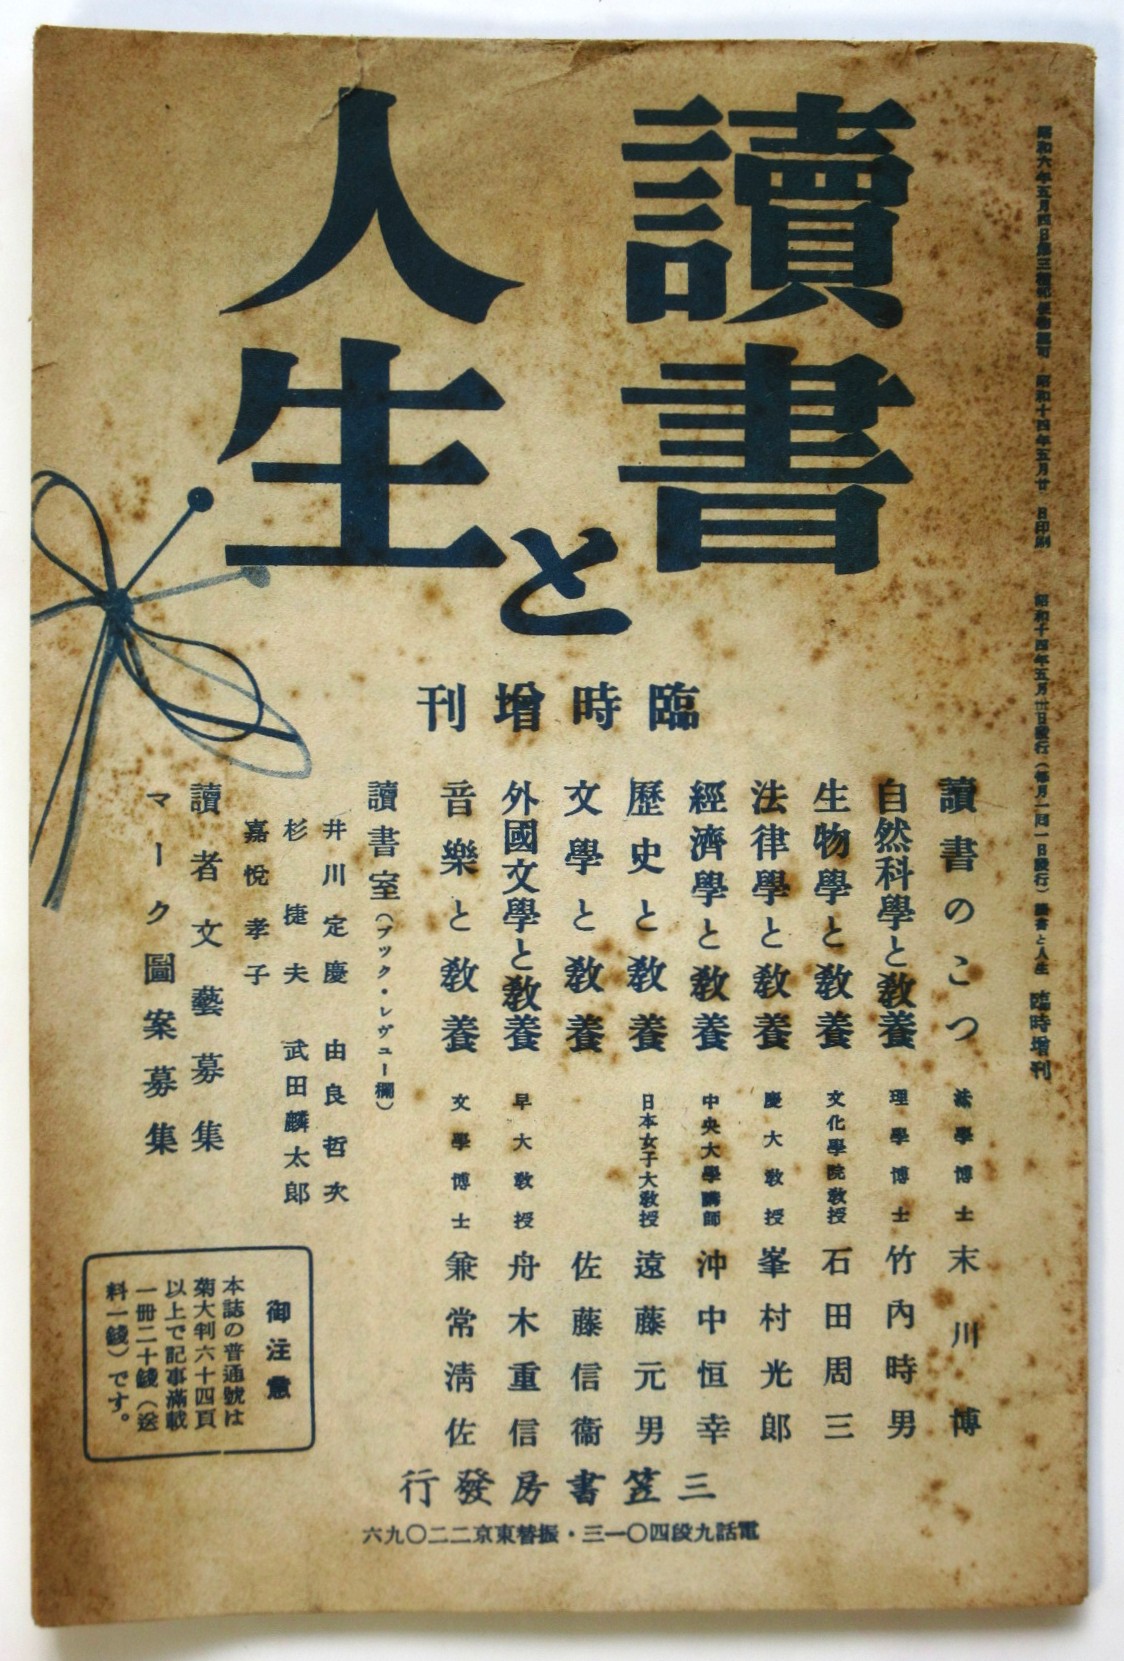 讀書
と
人生
臨時增刊
昭和六年五月四日第三種郵便物認可 昭和十四年五月廿 日印刷 昭和十四年五月卅日發行（每月一回一日發行）讀書と人生 臨時增刊
讀書のこつ 法學博士 末川博
自然科學と敎養 理學博士 竹內時男
生物學と敎養 文化學院敎授 石田周三
法律學と敎養 慶大敎授 峯村光郎
經濟學と敎養 中央大學講師 沖中恒幸
歷史と敎養 日本女子大敎授 遠藤元男
文學と敎養 佐藤信衞
外國文學と敎養 早大敎授 舟木重信
音樂と敎養 文學博士 兼常淸佐
讀書室（ブック・レヴュー欄）
井川定慶 由良哲次
杉捷夫 武田麟太郎
嘉悅孝子
讀者文藝募集
マーク圖案募集
御注意
本誌の普通號は
菊大判六十四頁
以上で記事滿載
一冊二十錢（送
料一錢）です。
三笠書房發行
電話九段四〇一三・振替東京二二〇九六